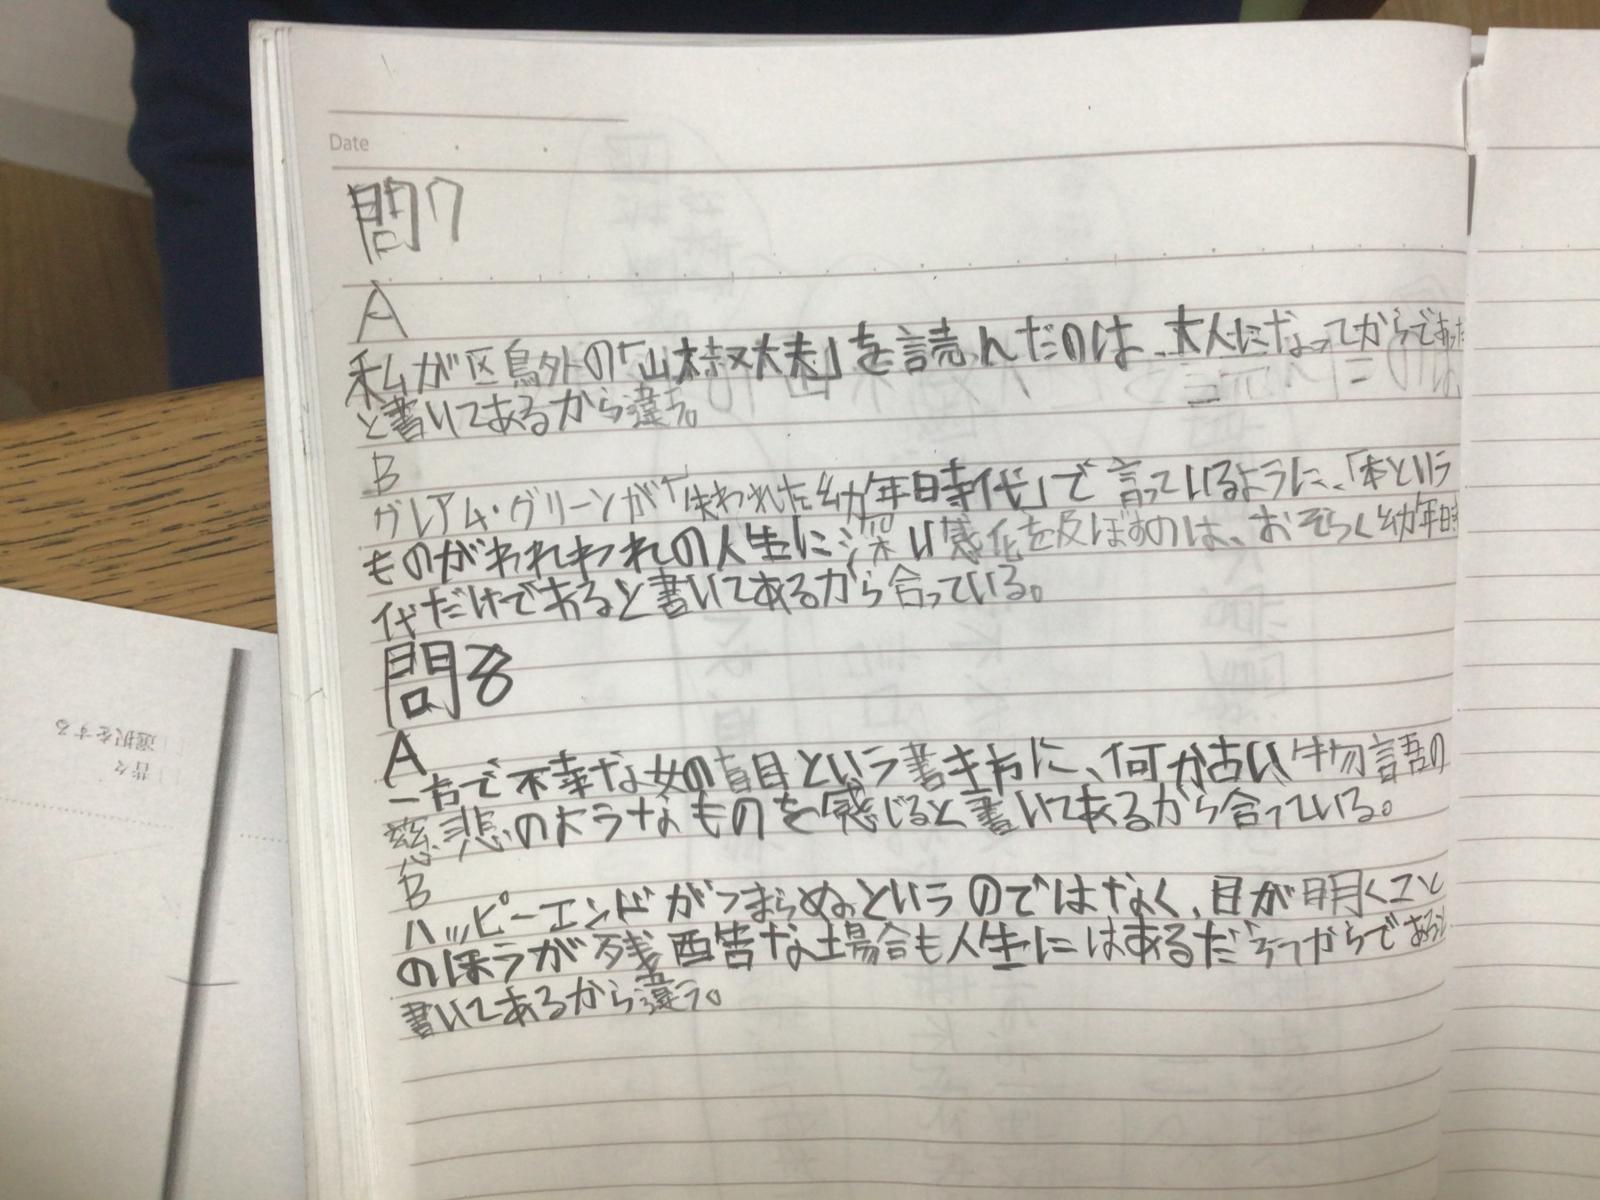 Date
問7
A
私が区鳥外の「山椒大夫」を読んだのは、大人になってからであった
と書いてあるから違う。
B
グレアム・グリーンが「失われた幼年時代」で言っているように、「本という
ものがわれわれの人生に深い感化を及ぼすのは、おそらく幼年時
代だけであると書いてあるから合っている。
問8
A
一方で不幸な女の盲目という書き方に、何か古い物語の
慈悲のようなものを感じると書いてあるから合っている。
B
ハッピーエンドがつまらぬというのではなく、目が明くこと
のほうが残酷な場合も人生にはあるだろうからであると
書いてあるから違う。
選択をする
昔々